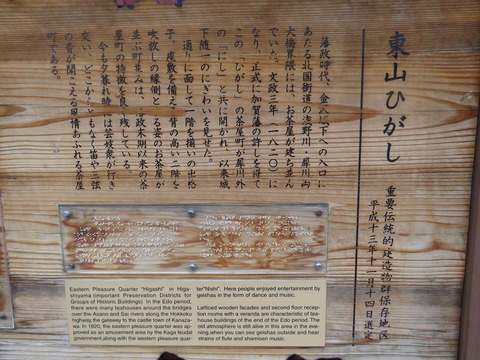 東山ひがし
重要伝統的建造物群保存地区
平成十三年十一月十四日選定
藩政時代、金沢城下への入口に
あたる北国街道の浅野川・犀川両
大橋界隈には、お茶屋が建ち並ん
でいた。文政三年(一八二〇)に
なり、正式に加賀藩の許しを得て
この「ひがし」の茶屋町が犀川外
の「にし」と共に開かれ、以来城
下随一のにぎわいを見せた。
通りに面して一階を揃いの出格
子、座敷を備え、背の高い二階を
吹放しの縁側とする姿のお茶屋が
並ぶ町並みは、藩政末期以来の茶
屋町の特徴を良く残している。
今も夕暮れ時には芸妓衆が行き
交い、どこからともなく笛や三弦
の音が聞こえる風情あふれる茶屋
町である。
Eastern Pleasure Quarter "Higashi" in Higa-
shiyama (important Preservation Districts for
Groups of Historic Buildings) In the Edo period,
there were many teahouses around the bridges
over the Asano and Sai rivers along the Hokkoku
highway,the gateway to the castle town of Kanaza-
wa. In 1820, the eastern pleasure quarter was ap-
proved as an amusement area by the Kaga feudal
government,along with the western pleasure quar-
ter"Nishi". Here people enjoyed entertainment by
geishas in the form of dance and music.
Latticed wooden facades and second floor recep-
tion rooms with a veranda are characteristic of tea-
house buildings of the end of the Edo period. The
old atmosphere is still alive in this area in the eve-
ning,when you can see geishas outside and hear
strains of flute and shamisen music.